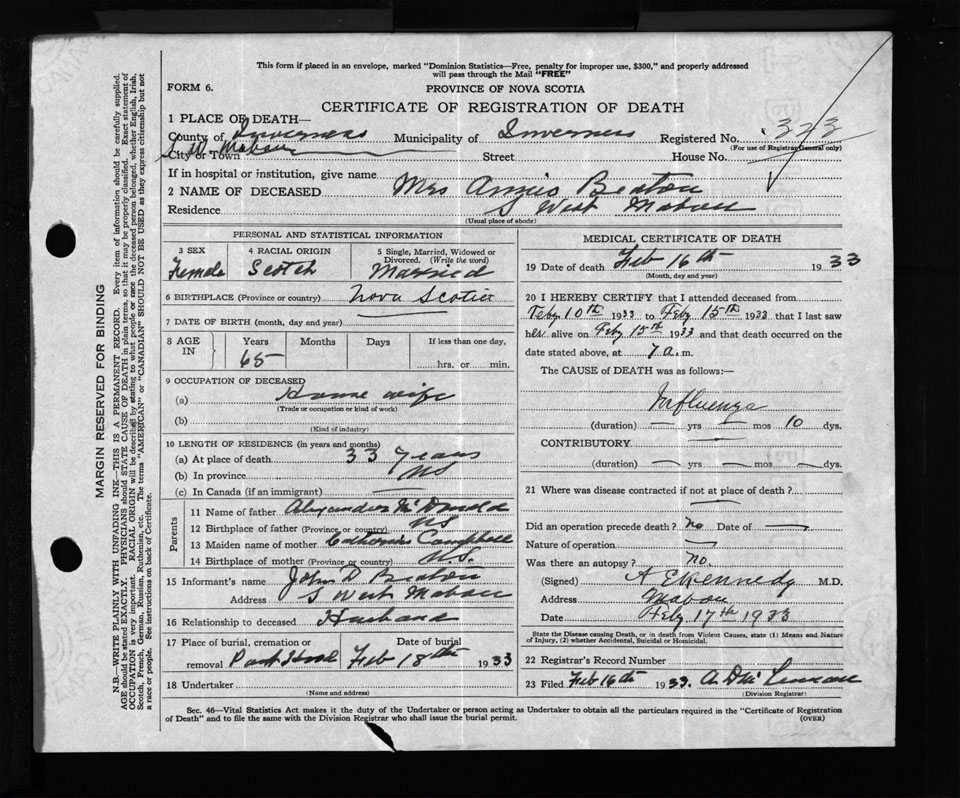 This form if placed in an envelope, marked "Dominion Statistics—Free, penalty for improper use, $300," and properly addressed
will pass through the Mail "FREE"
FORM 6.
PROVINCE OF NOVA SCOTIA
CERTIFICATE OF REGISTRATION OF DEATH
1 PLACE OF DEATH—
County of Inverness Municipality of Inverness Registered No. 323
(For use of Registrar General only)
City or Town S. W. Mabou Street House No.
If in hospital or institution, give name
2 NAME OF DECEASED Mrs Annie Beaton
Residence S West Mabou
(Usual place of abode)
PERSONAL AND STATISTICAL INFORMATION
3 SEX Female
4 RACIAL ORIGIN Scotch
5 Single, Married, Widowed or Divorced. (Write the word) Married
6 BIRTHPLACE (Province or country) Nova Scotia
7 DATE OF BIRTH (month, day and year)
8 AGE IN Years 65 Months Days If less than one day, hrs. or min.
9 OCCUPATION OF DECEASED
(a) House wife
(Trade or occupation or kind of work)
(b)
(Kind of industry)
10 LENGTH OF RESIDENCE (in years and months)
(a) At place of death 33 years
(b) In province NS
(c) In Canada (if an immigrant) —
Parents
11 Name of father Alexander McDonald
12 Birthplace of father (Province, or country) NS
13 Maiden name of mother Catherine Campbell
14 Birthplace of mother (Province or country) N.S.
15 Informant's name John D Beaton
Address S West Mabou
16 Relationship to deceased Husband
17 Place of burial, cremation or removal Port Hood Date of burial Feb 18th 1933
18 Undertaker
(Name and address)
MEDICAL CERTIFICATE OF DEATH
19 Date of death Feb 16th 1933
(Month, day and year)
20 I HEREBY CERTIFY that I attended deceased from
Feby 10th 1933 to Feby 15th 1933 that I last saw
her alive on Feby 15th 1933 and that death occurred on the
date stated above, at 7 a.m.
The CAUSE of DEATH was as follows:—
Influenza
(duration) — yrs — mos 10 dys.
CONTRIBUTORY —
(duration) — yrs — mos — dys.
21 Where was disease contracted if not at place of death? —
Did an operation precede death? no Date of —
Nature of operation —
Was there an autopsy? no.
(Signed) A E Kennedy M.D.
Address Mabou
Date Feby 17th 1933
State the Disease causing Death, or in death from Violent Causes, state (1) Means and Nature
of Injury, (2) whether Accidental, Suicidal or Homicidal.
22 Registrar's Record Number
23 Filed Feb 16th 1933.
(Division Registrar)
Sec. 46—Vital Statistics Act makes it the duty of the Undertaker or person acting as Undertaker to obtain all the particulars required in the "Certificate of Registration
of Death" and to file the same with the Division Registrar who shall issue the burial permit.
(OVER)
MARGIN RESERVED FOR BINDING
N.B.—WRITE PLAINLY WITH UNFADING INK—THIS IS A PERMANENT RECORD. Every item of information should be carefully supplied.
AGE should be stated EXACTLY. PHYSICIANS should STATE CAUSE OF DEATH in plain terms, so that it may be properly classified. Exact statement of
OCCUPATION is very important. RACIAL ORIGIN will be described by stating to what people or race the deceased person belonged, whether English, Irish,
Scotch, French, German, Russian, Ruthenian, etc. The terms "AMERICAN" or "CANADIAN" SHOULD NOT BE USED as they express citizenship but not
a race or people. See instructions on back of Certificate.